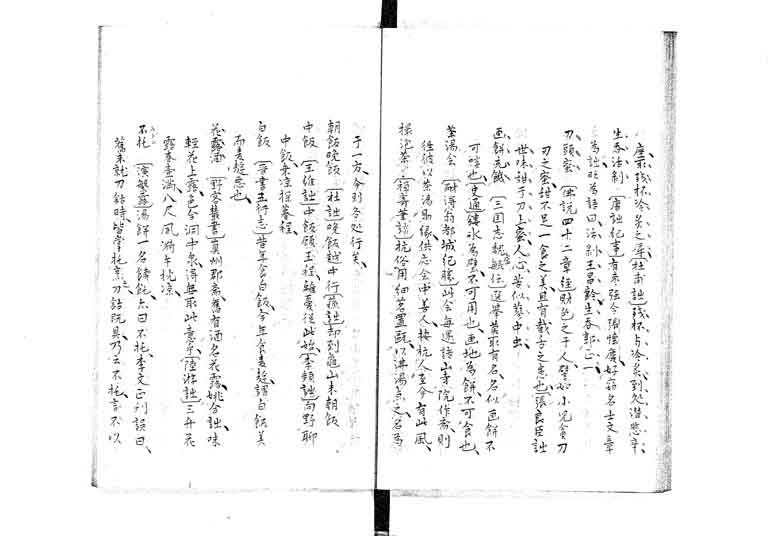 座取残杯冷炙之辱杜甫詩残杯与冷炙到処潜悲辛
生呑活剥唐詩紀事有棗強令張懐慶好窃名士文章
為詩時為語曰活剥王昌齢生呑郭正一
刀頭蜜仏説四十二章経財色之于人譬如小児貪刀
刃之蜜甜不足一食之美且有截舌之患也張良臣詩
世味甜于刀上蜜人心苦似蘗中虫
画餅充饑三国志魏毓伝選挙莫取有名名似画餅不
可啖也史通鏤氷為璧不可用也画地為餅不可食也
茶湯会耐得翁都城紀勝此会毎遇諸山寺院作斎則
往彼以茶湯助縁供応会中善人按杭人至今有此風
撮泡茶梧葊筆談杭俗用細茗置甌以沸湯点之名為
于一方今則各処行矣
朝飯晩飯杜詩晩飯越中行蘇詩却到亀山未朝飯
中飯王維詩中飯顧王程離憂従此始李頻詩向野聊
中飯乗涼探暮程
白飯晋書五行志昔年食白飯今年食麦麩謂白飯美
而麦麩悪也
花露酒野客叢書真州郡斎旧有酒名花露姚合詩味
軽花上露色今洞中泉得無取此意乎陸游詩三升花
露春壺満八尺風漪午枕涼
不托演繁露湯餅一名餺飥亦曰不托李文正刊誤曰
旧未就刀鈷時皆掌托烹刀鈷既具乃云不托言不以